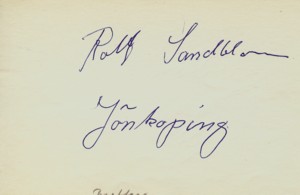 Rolf Sandblom
Jönköping